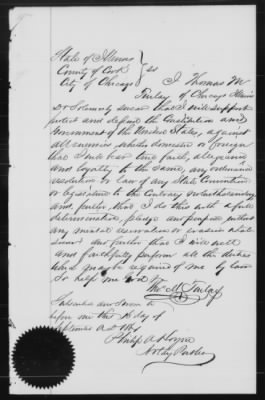 State of Illinois
County of Cook } ss
City of Chicago
I Thomas M
Finlay of Chicago Illinois
Do Solemnly swear that I will support
protect and defend the Constitution and
Government of the United States, against
all enemies, whether domestic or foreign
that I will bear true faith, allegiance
and loyalty to the same, any ordinance
resolution or law of any State Convention
or Legislature to the Contrary notwithstanding
and further, that I do this with a full
determination, pledge and purpose without
any mental reservation or evasion what-
soever and further that I will well
and faithfully perform all the duties
which may be required of me by law
So help me God
Tho M Finlay
Subscribed and Sworn to
before me the 16 day of
September A.D. 186
Philip A Hoyne
Notary Public